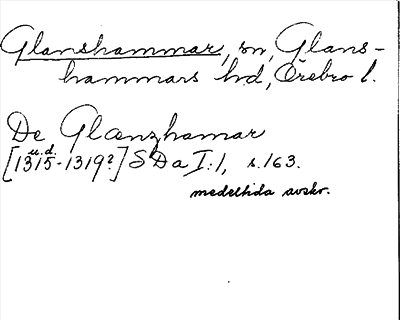 Glanshammar, sn, Glans-
hammars hd, Örebro l.
De Glænzhamar
u.d.
[1315-1319?] SDa I:1, s. 163.
medeltida avskr.